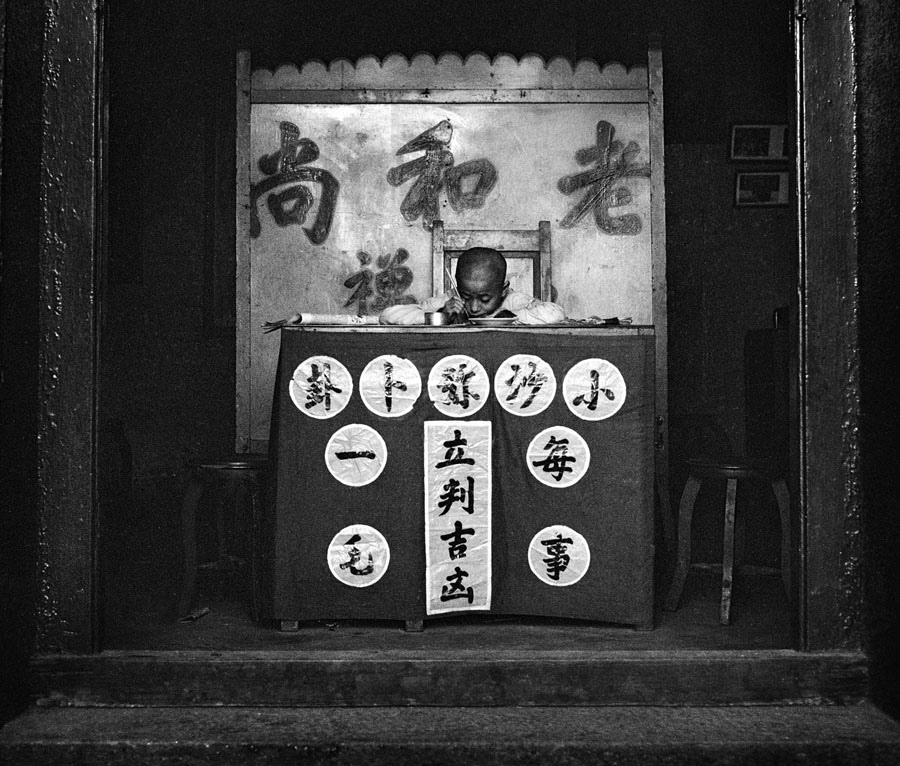 老和尚
禪
小沙弥卜卦
每事
立判吉凶
一毛